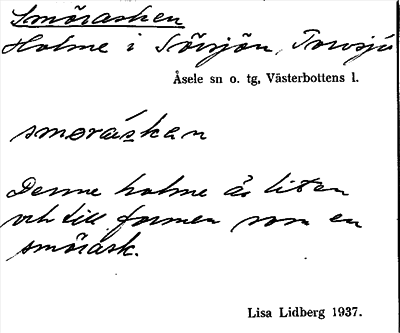 Smörasken
Holme i Sörsjön, Torvsjö
Åsele sn o. tg, Västerbottens l.
smøráskan
Denne holme är liten
och till formen som en
smörask.
Lisa Lidberg 1937.